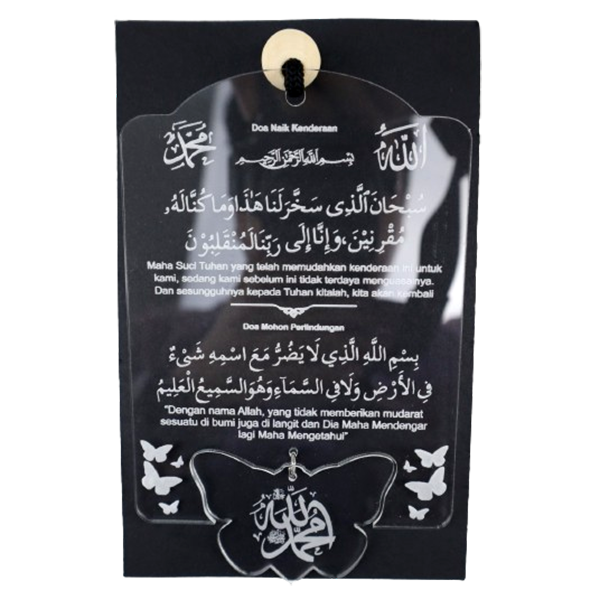 Doa Naik Kenderaan
محمد
الله
بسم الله الرحمن الرحيم
سُبْحَانَ ٱلَّذِي سَخَّرَ لَنَا هَٰذَا وَمَا كُنَّا لَهُ
مُقْرِنِيْنَ، وَإِنَّا إِلَى رَبِّنَا لَمُنْقَلِبُوْنَ
Maha Suci Tuhan yang telah memudahkan kenderaan ini untuk
kami, sedang kami sebelum ini tidak terdaya menguasainya.
Dan sesungguhnya kepada Tuhan kitalah, kita akan kembali
Doa Mohon Perlindungan
بِسْمِ اللَّهِ الَّذِي لَا يَضُرُّ مَعَ اسْمِهِ شَيْءٌ
فِي الأَرْضِ وَلَا فِي السَّمَاءِ وَهُوَ السَّمِيعُ الْعَلِيمُ
"Dengan nama Allah, yang tidak memberikan mudarat
sesuatu di bumi juga di langit dan Dia Maha Mendengar
lagi Maha Mengetahui"
الله
محمد